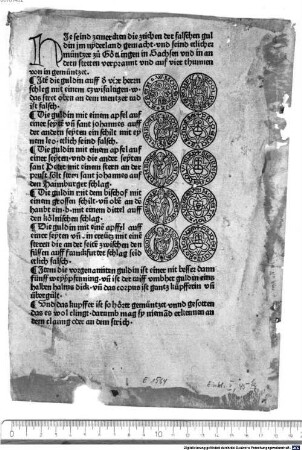 Hie seind zemercken die zeichen der falschen gul
din im niderland gemacht. vnd seind etlicher
müntzer zu Göttingen in Sachsen vnd in an
dern stetten verprannt vnd auf vier thunnen
von in gemüntzet.
¶ Itē die guldin auff ð vier herrn
schleg mit einem zwifaltigen w.
das stet oben an dem mentzer rad
ist falsch.
¶ Die guldin mit einem apfel auf
einer seytē vñ sant johannes auf
der andern seyten ein schilt mit ey
nem leo. etlich seind falsch.
¶ Die guldin mit einem apfel auf
einer seyten. vnd die ander seyten
sant Peter mit einem stern an der
prust. solt sten sant johannes auf
den Haimburger schlag.
¶ Die guldin mit dem bischof mit
einem grossen schilt. vñ obē an dē
haubt ein h. mit einem dietel auff
den kölnischen schlag.
¶ Die guldin mit einē apffel auff
einer seyten vñ ein creutz mit eim
steren die an der seitē zwischen den
füssen auff franckfurter schlag seid
etlich falsch.
¶ Item die vorgenannten guldin ist einer nit besser dann
fünff weyßpfenning. vñ ist der auff vnd überguldin eins
halben halms dick. vñ das corpus ist gantz küpfferin vñ
übergült.
¶ Vnd das kupffer ist so hört gemüntzet vnnd gesotten
das es wol clingt. darumb mag sy niemād erkennen an
dem clanng oder an dem strich.
E 1564
0 1 2 3 4 5 6 7 8 9 10